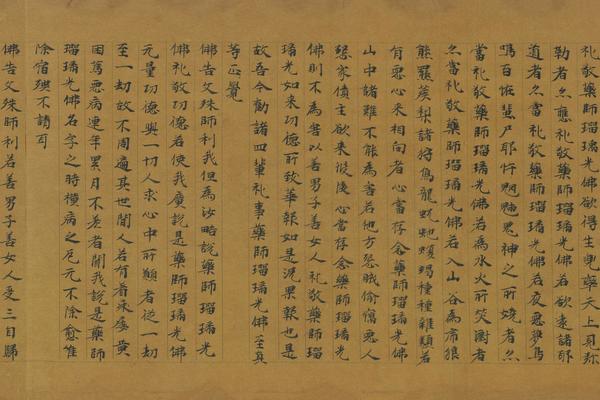 礼敬藥師瑠璃光佛欲得生兜藥天上見弥
勒者亦應礼敬藥師瑠璃光佛若欲遠諸邪
道者亦當礼敬藥師瑠璃光佛若夜惡夢鳥
鳴百恠蜚尸耶忤魍魎鬼神之所嬈者亦
當礼敬藥師瑠璃光佛若為水火所焚漂者
亦當礼敬藥師瑠璃光佛若入山谷為帝狼
熊羆蒺梨諸狩鳥龍蚖虵蝮蝎種種雜類若
有惡心来相向者心當存念藥師瑠璃光佛
山中諸難不能為害若他方怨賊偷竊惡人
怨家債主欲来侵陵心當存念藥師瑠璃光
佛則不為害以善男子善女人礼敬藥師瑠
璃光如来功德所致華報如是況果報也是
故吾今勸諸四輩礼事藥師瑠璃光佛至真
等正覺
佛告文殊師利我但為汝略說藥師瑠璃光
佛礼敬功德若使我廣說是藥師瑠璃光佛
无量功德與一切人求心中所願者從一劫
至一劫故不周遍其世閒人若有著床虛黄
困篤惡病連年累月不差者聞我說是藥師
瑠璃光佛名字之時橫病之厄无不除愈惟
除宿殃不請耳
佛告文殊師利若善男子善女人受三自歸